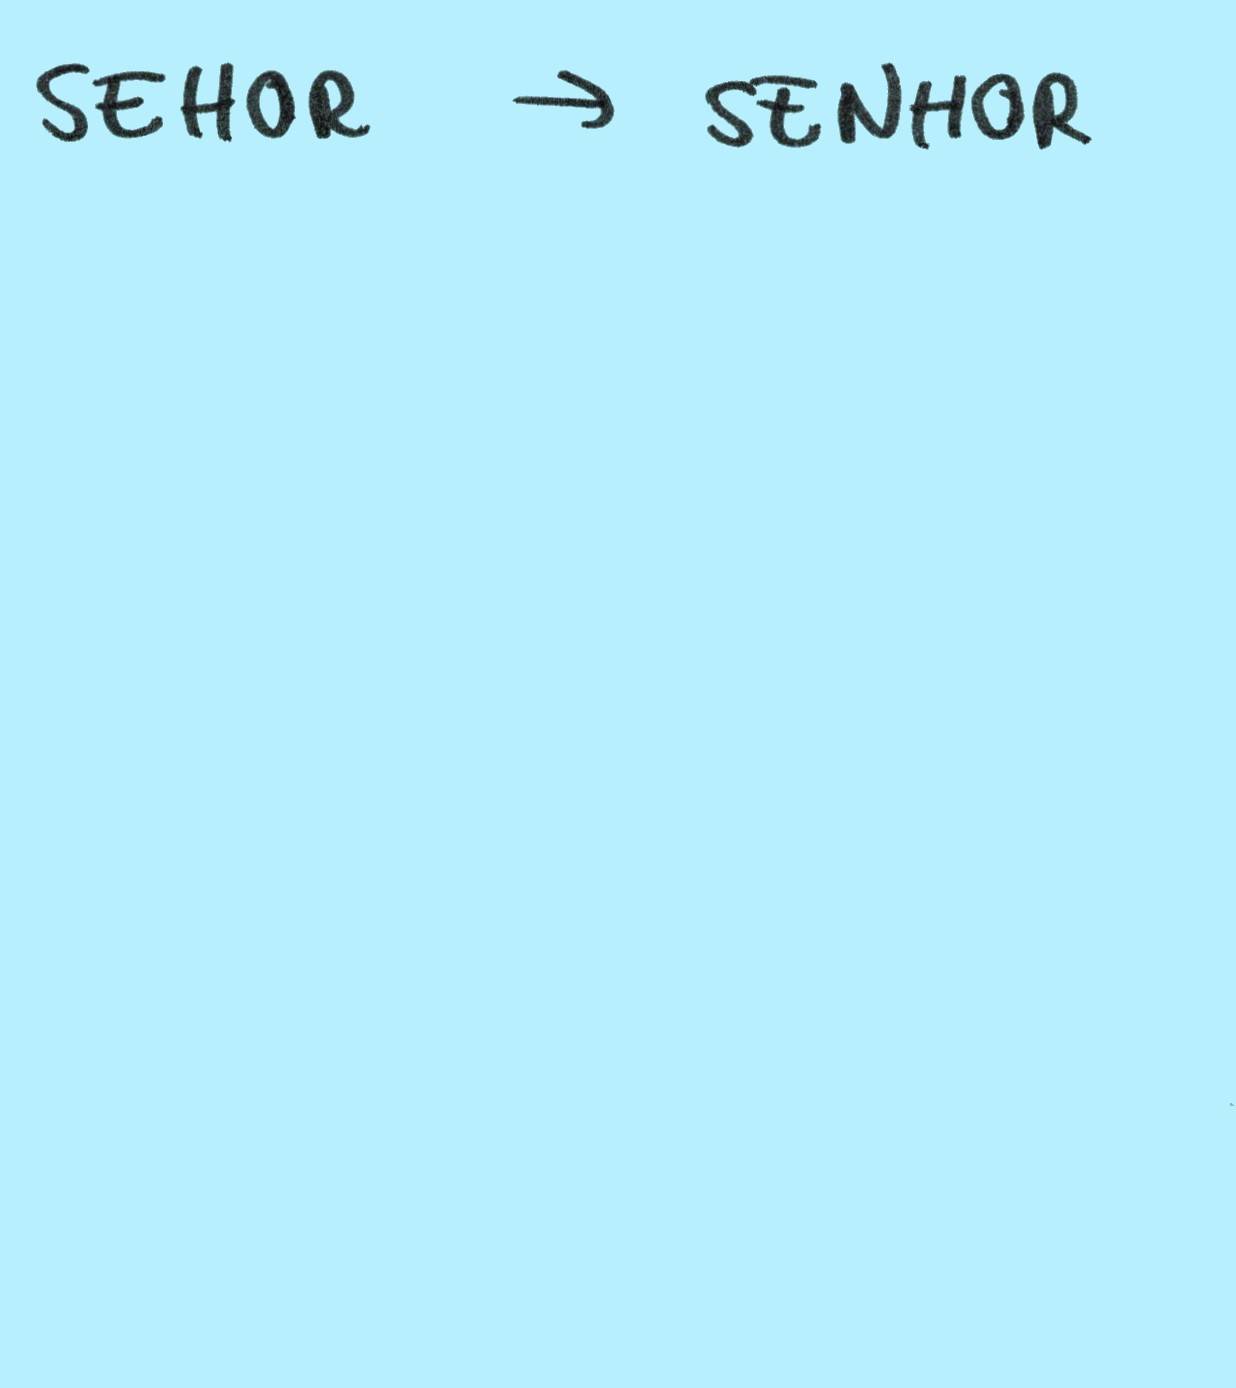 SEHOR → SENHOR